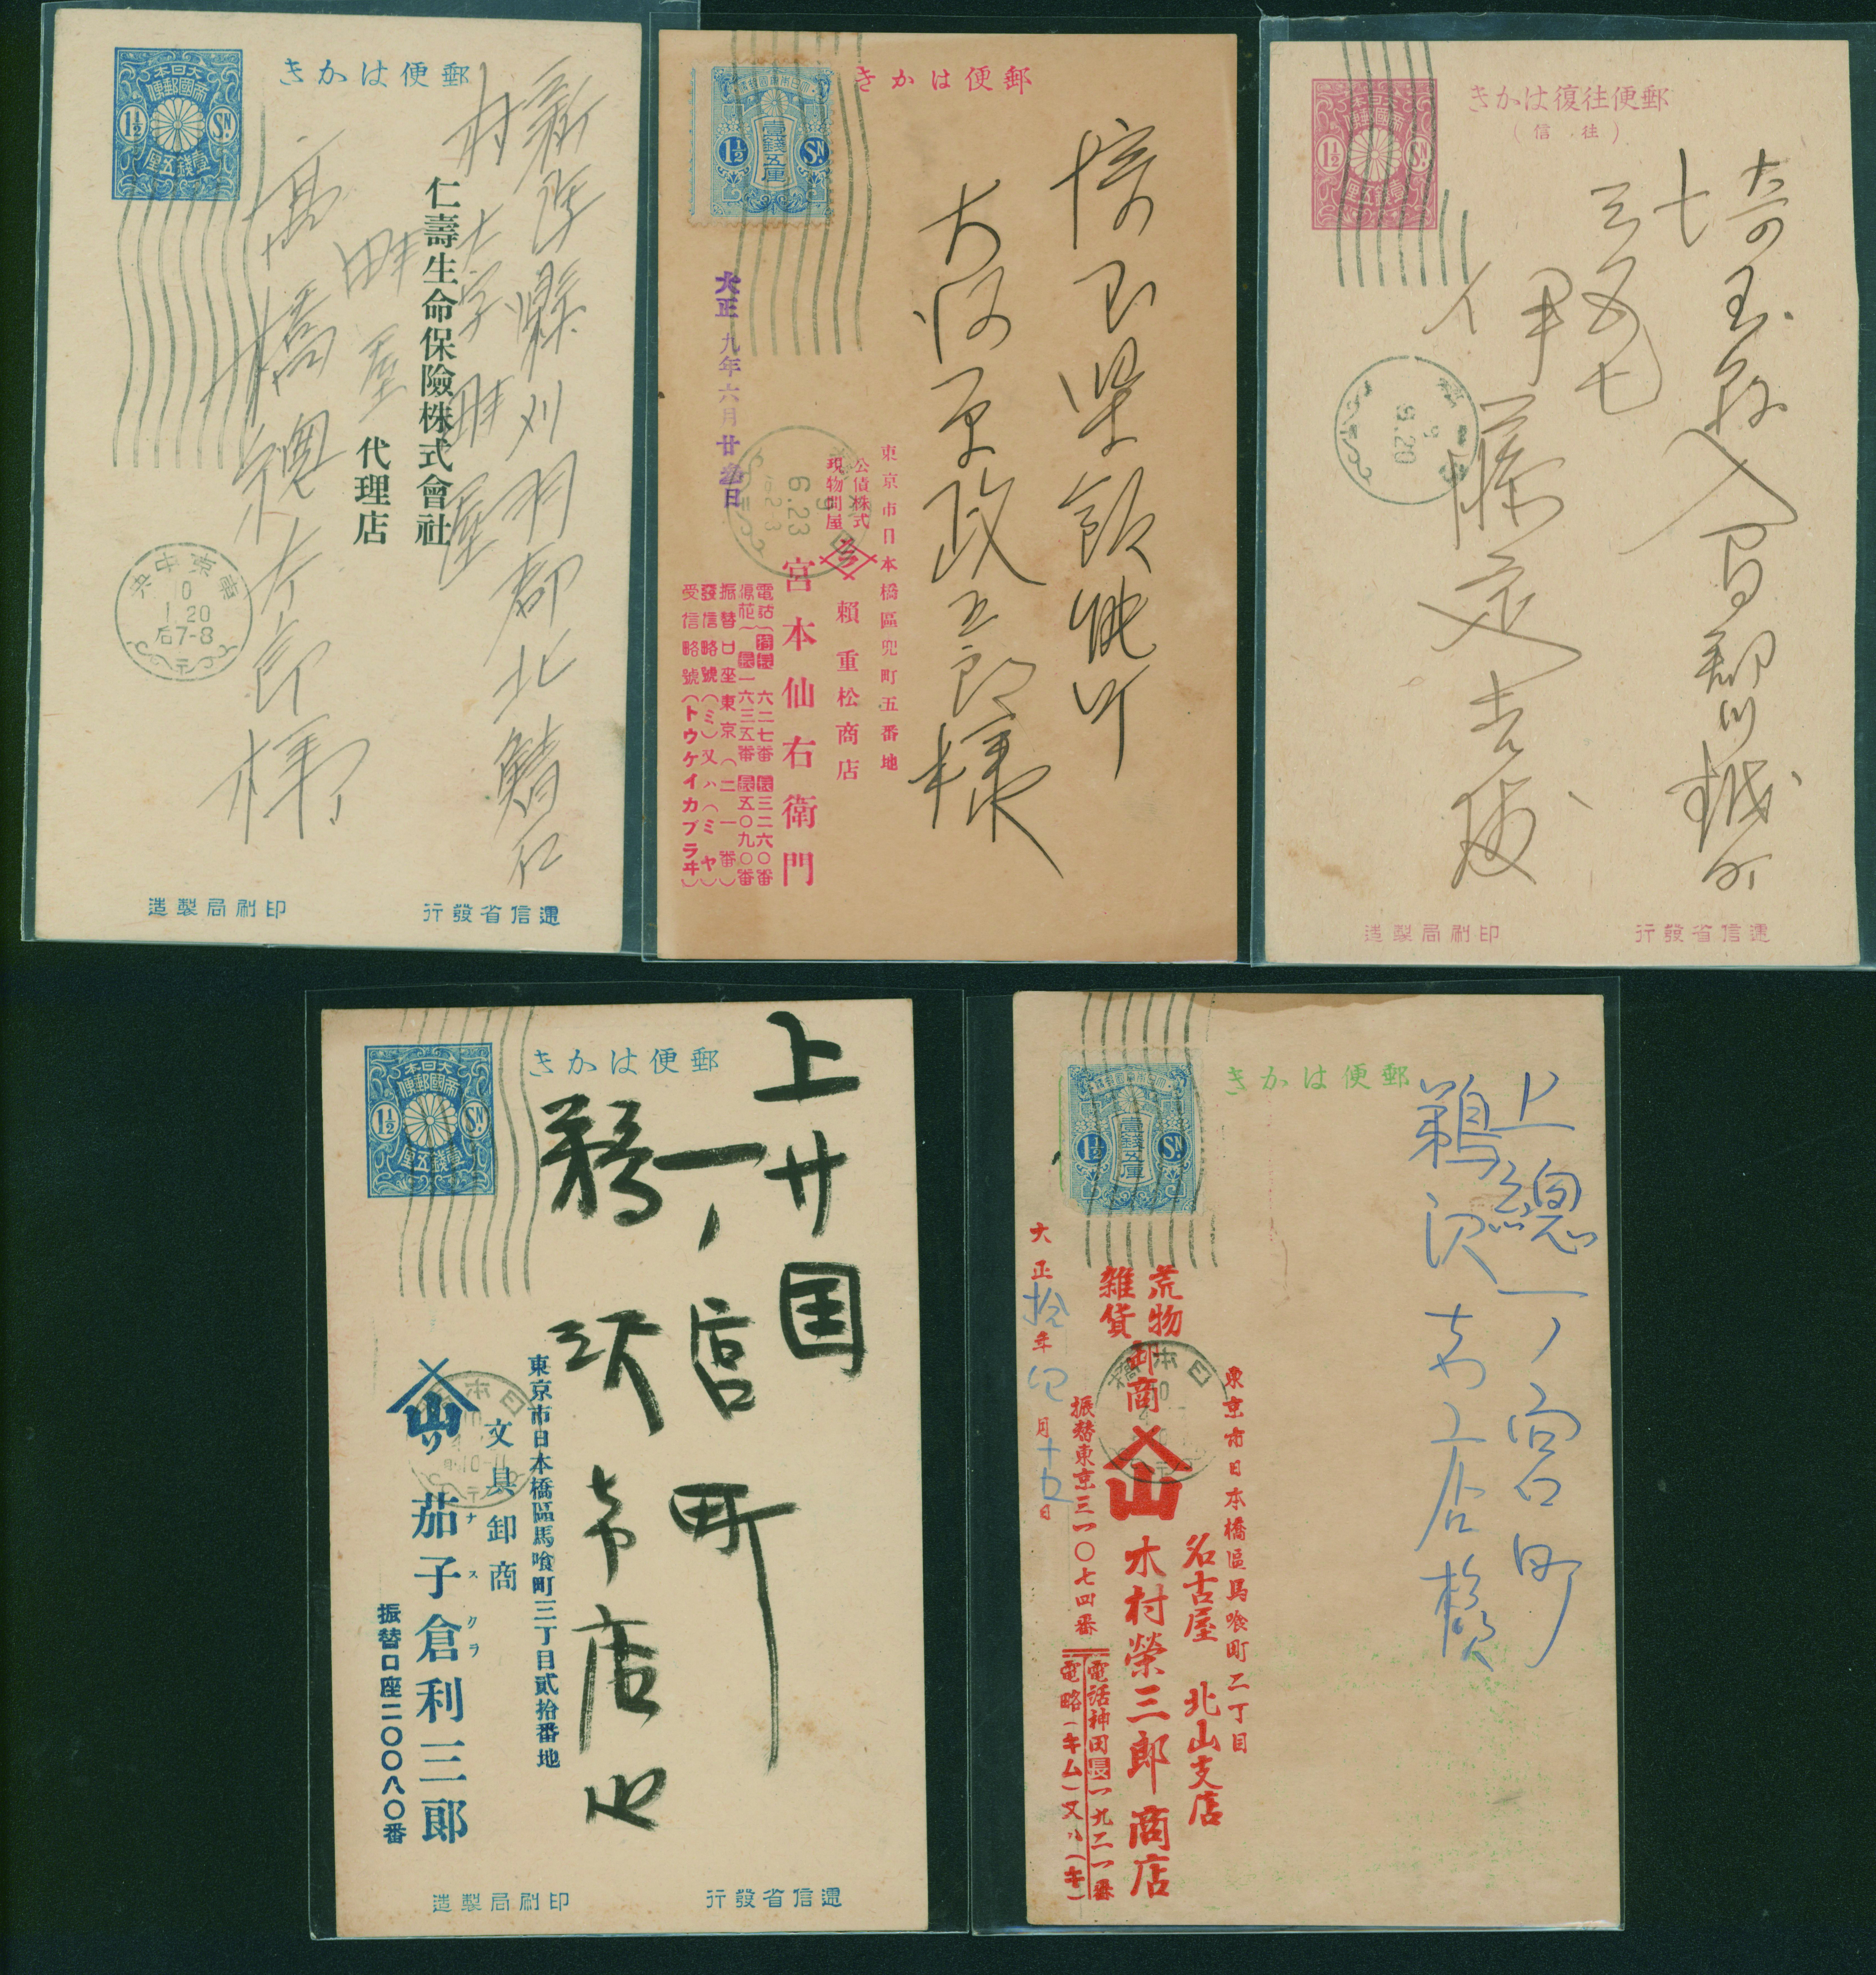 郵便はかき
大日本
帝國郵便
1½ SN
壹錢五厘
新潟縣刈羽郡北鯖石
村大字畔屋
仁壽生命保險株式會社
代理店
畔屋
高橋
東京中央
10
1.20
后7-8
遞信省發行
印刷局製造
郵便はかき
壹錢五厘
1½ SN
大正九年六月廿參日
埼玉県飯能町
大河原政五郎様
東京市日本橋區兜町五番地
公債株式
現物問屋
賴重松商店
宮本仙右衛門
電話
浪花
六二七番
三二六〇番
一六三五番
五〇九〇番
振替口座東京(二一番)
發信略號(ミ)又ハ(ミヤ)
受信略號(トウケイカブラヰ)
9
6.23
郵便往復はかき
(往信)
大日本
帝國郵便
1½ SN
壹錢五厘
埼玉縣入間郡川越町
伊藤定吉様
9
9.20
遞信省發行
印刷局製造
郵便はかき
大日本
帝國郵便
1½ SN
壹錢五厘
上廿国
一ノ宮町
鵜沢
商店
東京市日本橋區馬喰町三丁目貳拾番地
文具卸商
山リ
茄子倉利三郎
ナスクラ
振替口座二〇〇八〇番
日本橋
遞信省發行
印刷局製造
郵便はかき
壹錢五厘
1½ SN
上總一ノ宮町
鵜沢
大正拾年四月十五日
荒物
雑貨
卸商
山
東京市日本橋區馬喰町二丁目
名古屋 北山支店
木村榮三郎商店
振替東京三一〇七四番
電話神田長一九二一番
電略(キム)又ハ(キ)
日本橋
10